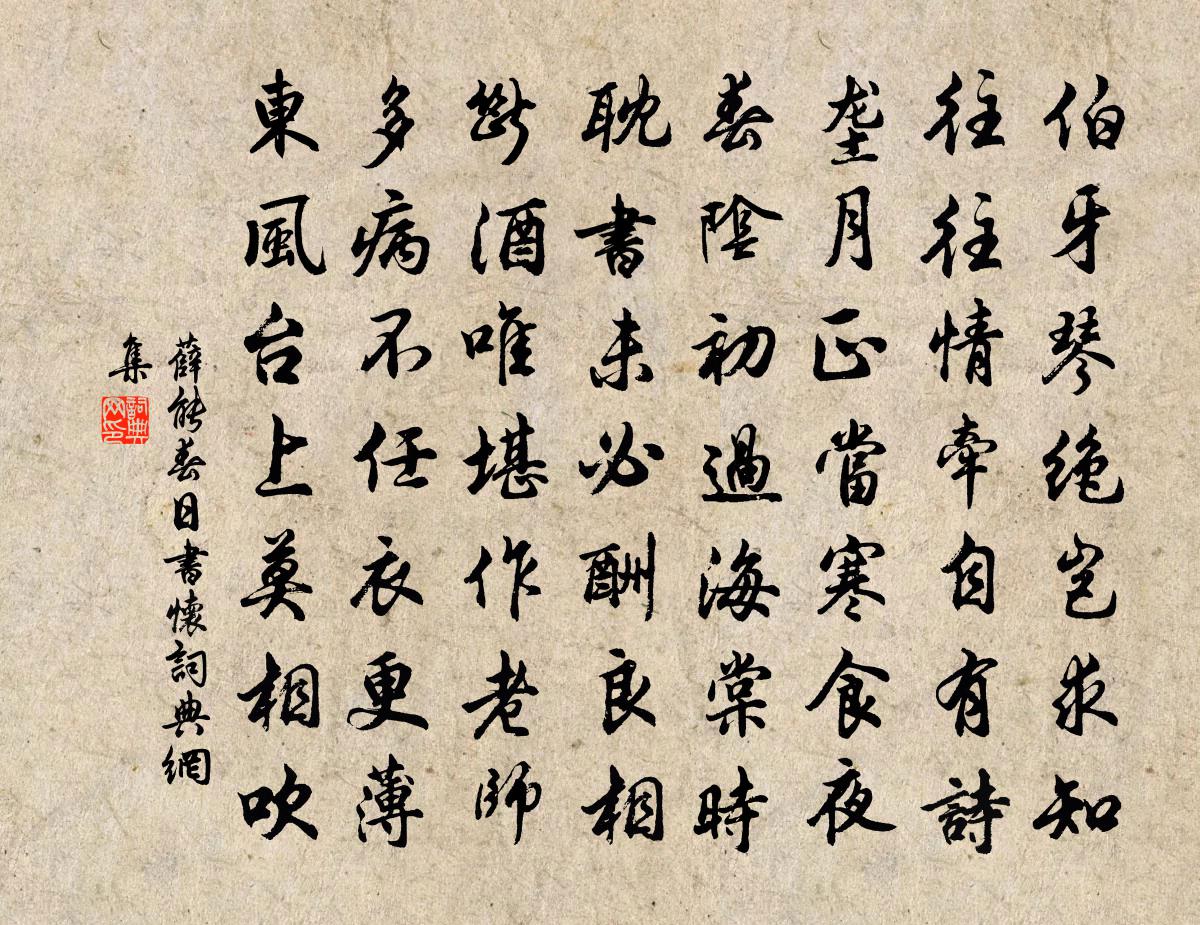 伯牙琴绝岂求知
往往情牵自有詩
垄月正當寒食夜
春陰初過海棠時
耽書未必酬良相
斷酒唯堪作老師
多病不任衣更薄
東風台上莫相吹
薛能春日書懷詞典網
集
詞典
网印